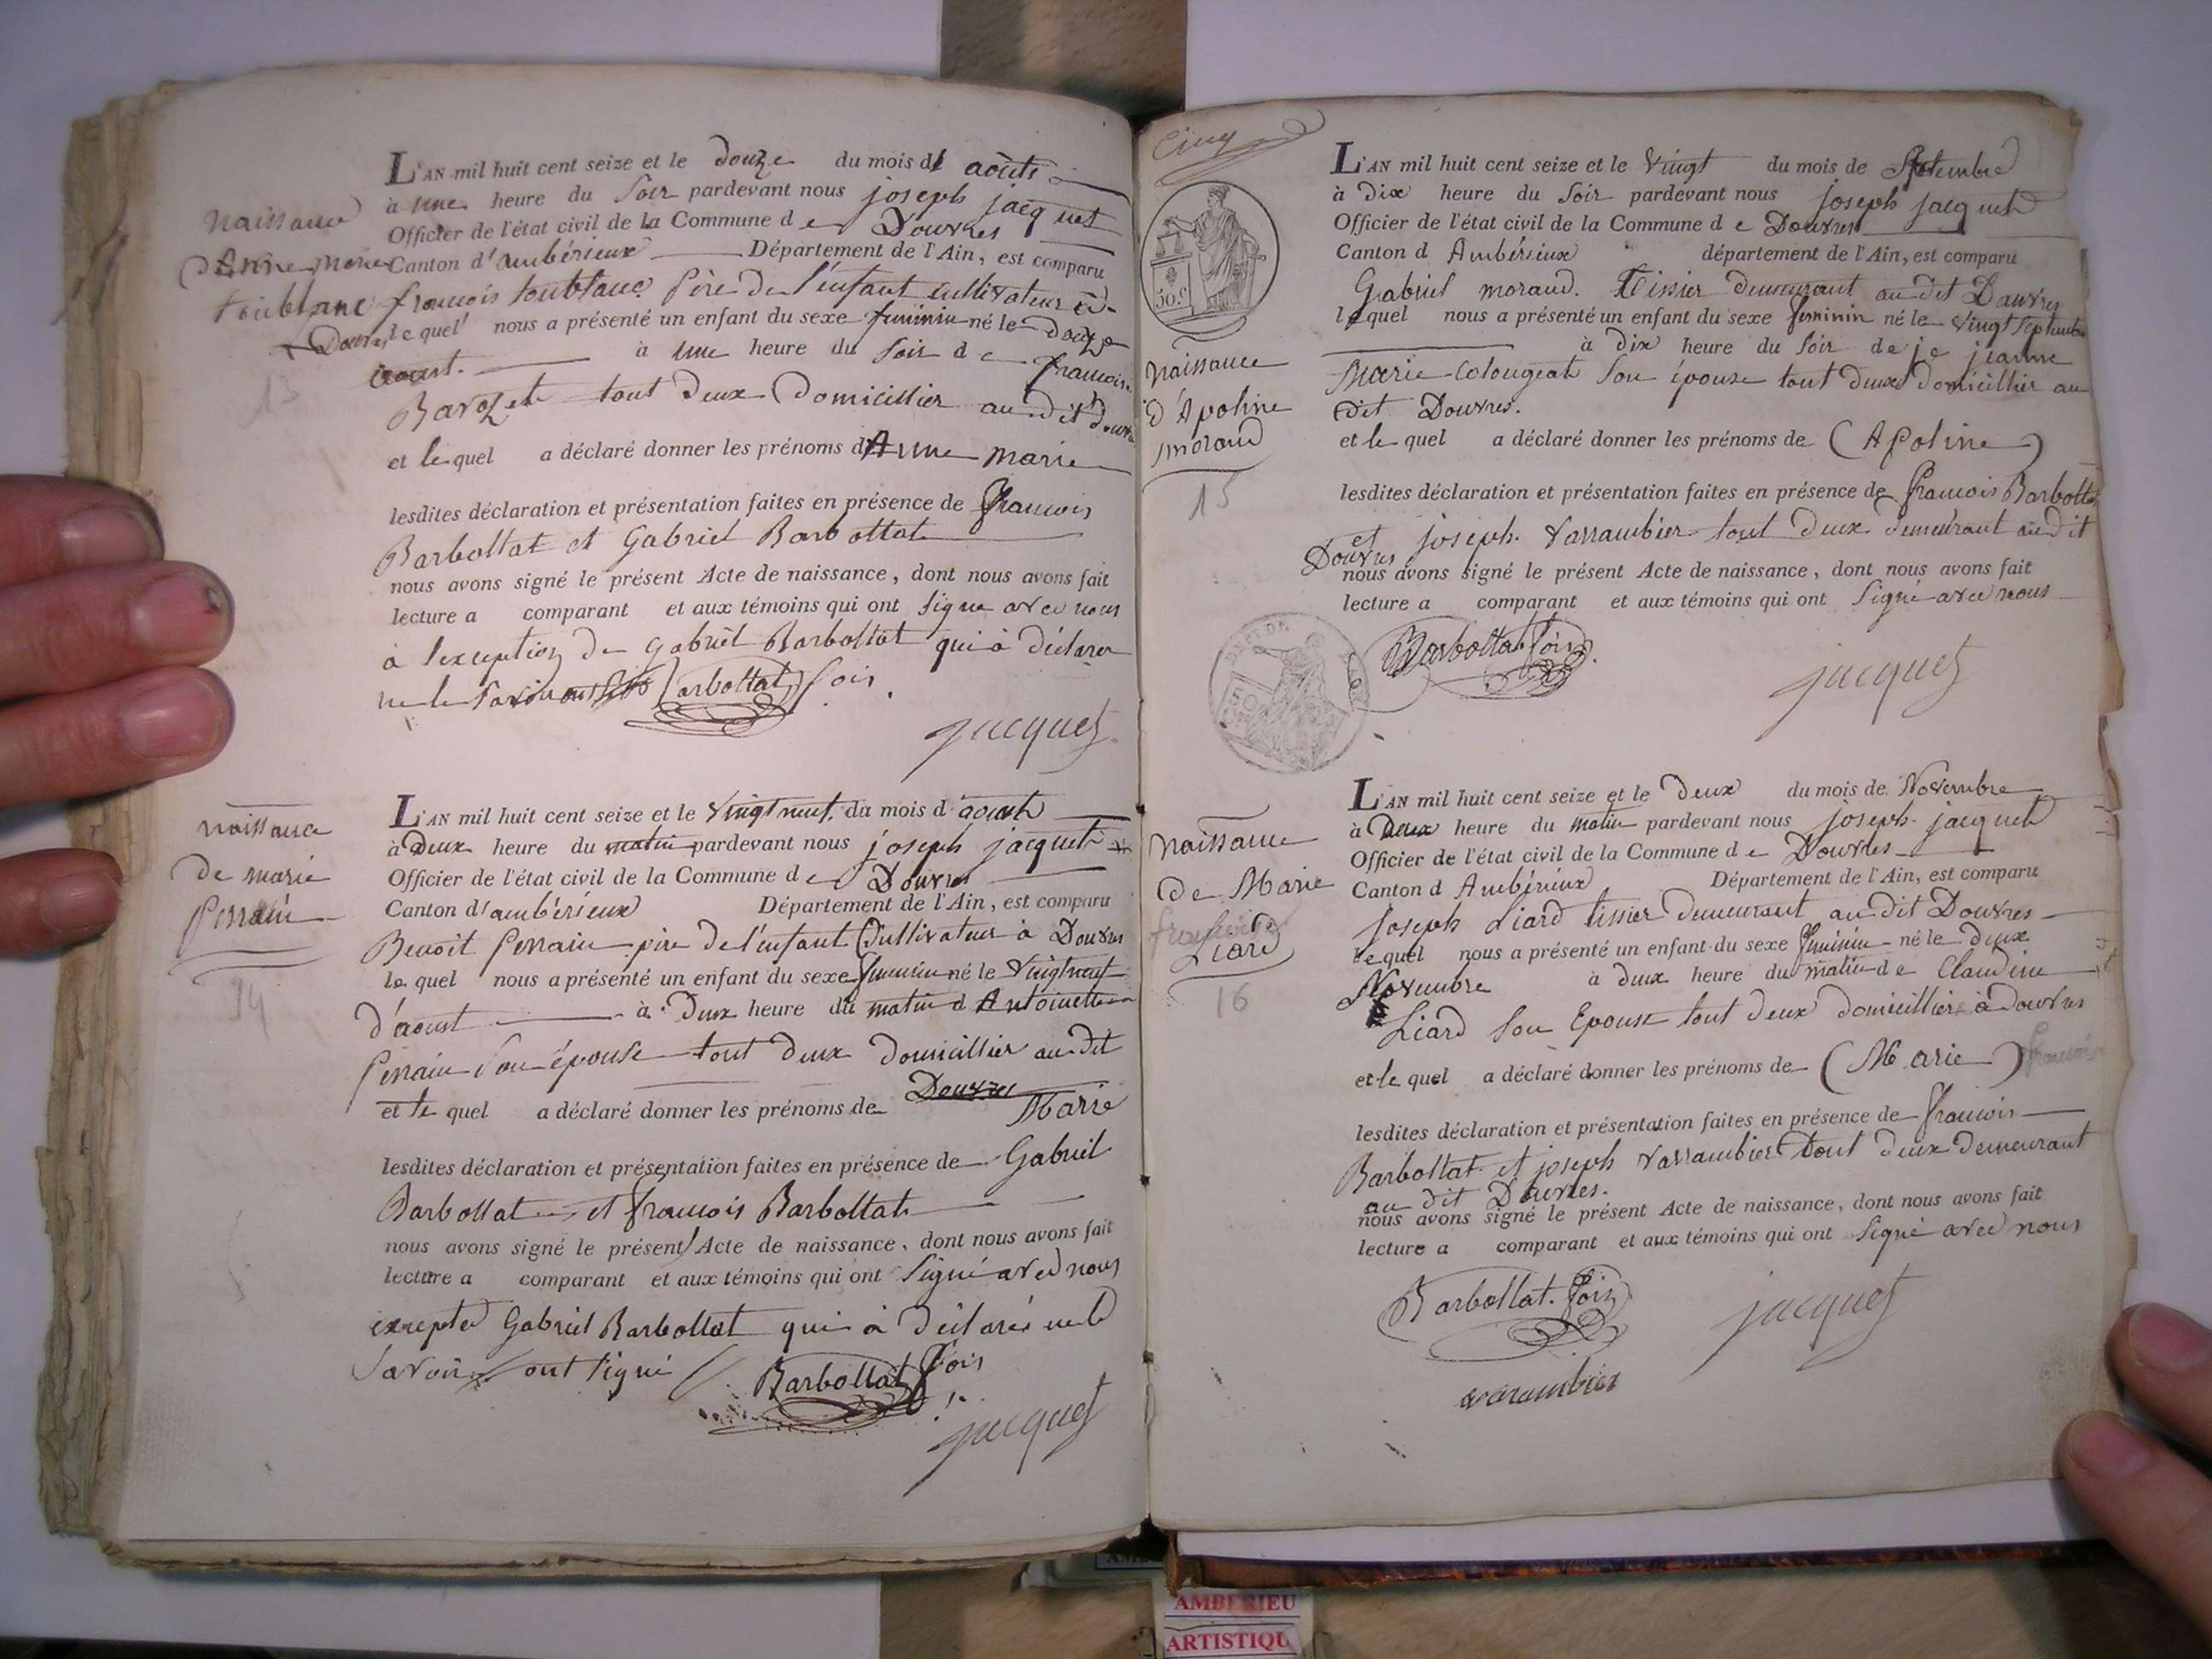 L'AN mil huit cent seize et le douze du mois d' aoûts
à une heure du soir pardevant nous joseph jacquet
Officier de l'état civil de la Commune de Douvres
Canton d'ambérieux Département de l'Ain, est comparu
françois toublanc Père de l'enfant cultivateur à
Douvres le quel nous a présenté un enfant du sexe feminin né le douze
aoust. à une heure du soir de françoise
Barozet tout deux Domicillier au dit douvres
et le quel a déclaré donner les prénoms d'Anne marie
lesdites déclaration et présentation faites en présence de françois
Barbollat et Gabriel Barbottat
nous avons signé le présent Acte de naissance, dont nous avons fait
lecture a comparant et aux témoins qui ont signe avec nous
à lexception de gabriel Barbollat qui à déclarer
ne le savoir Barbottat fois
jacquet
naissance
d'Anne marie
toublanc
13
L'AN mil huit cent seize et le vingt neuf du mois d'aoust
à Deux heure du matin pardevant nous joseph jacquet
Officier de l'état civil de la Commune de Douvres
Canton d'ambérieux Département de l'Ain, est comparu
Benoit Perrain père de l'enfant Cultivateur à Douvres
le quel nous a présenté un enfant du sexe feminin né le vingt neuf
d'aoust à Deux heure du matin d'Antoinette
Perrain son épouse tout deux Domicillier au dit
Douvres
et le quel a déclaré donner les prénoms de Marie
lesdites déclaration et présentation faites en présence de Gabriel
Barbollat et françois Barbottat
nous avons signé le présent Acte de naissance, dont nous avons fait
lecture a comparant et aux témoins qui ont signé avec nous
excepter Gabriel Barbollat qui à déclarés ne le
savoir ont signé Barbollat fois
jacquet
naissance
de marie
Perrain
14
Cinq
50.c
L'AN mil huit cent seize et le vingt du mois de Septembre
à dix heure du soir pardevant nous joseph jacquet
Officier de l'état civil de la Commune de Douvres
Canton d Ambérieux département de l'Ain, est comparu
Gabriel moraud. Tissier demeurant au dit Douvres
le quel nous a présenté un enfant du sexe feminin né le vingt septembre
à dix heure du soir de je jeanne
Marie Colougeat son épouse tout deux domicillier au
dit Douvres.
et le quel a déclaré donner les prénoms de (Apoline)
lesdites déclaration et présentation faites en présence de françois Barbottat
et joseph. Varrambier tout deux demeurant audit
Douvres
nous avons signé le présent Acte de naissance, dont nous avons fait
lecture a comparant et aux témoins qui ont signé avec nous
Barbottat fois
jacquet
naissance
d'Apoline
moraud
15
L'AN mil huit cent seize et le Deux du mois de Novembre
à Deux heure du matin pardevant nous joseph jacquet
Officier de l'état civil de la Commune de Douvres
Canton d Ambérieux Département de l'Ain, est comparu
joseph Liard tissier demeurant au dit Douvres
le quel nous a présenté un enfant du sexe feminin né le deux
Novembre à deux heure du matin de Claudine
Liard son Epouse tout deux domicillier à douvres
et le quel a déclaré donner les prénoms de (Marie) françoise
lesdites déclaration et présentation faites en présence de françois
Barbottat et joseph Varrambier tout deux demeurant
au dit Douvres.
nous avons signé le présent Acte de naissance, dont nous avons fait
lecture a comparant et aux témoins qui ont signé avec nous
Barbollat. fois
jacquet
varambier
naissance
de Marie
françoise
Liard
16
AMBERIEU
ARTISTIQU